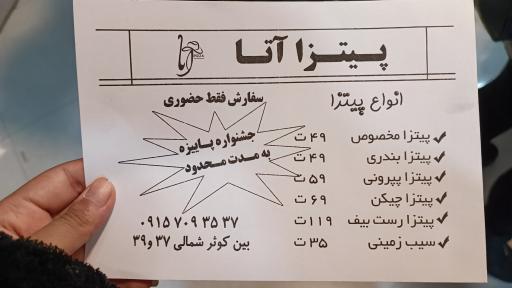 پیتزا آتا
انواع پیتزا
پیتزا مخصوص ۴۹ ت
پیتزا بندری ۴۹ ت
پیتزا پپرونی ۵۹ ت
پیتزا چیکن ۶۹ ت
پیتزا رست بیف ۱۱۹ ت
سیب زمینی ۳۵ ت
سفارش فقط حضوری
جشنواره پاییزه
به مدت محدود
۰۹۱۵ ۷۰۹ ۳۵ ۳۷
بین کوثر شمالی ۳۷ و ۳۹